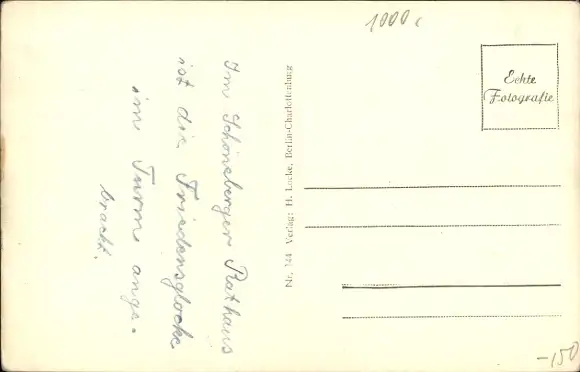 Im Schöneberger Rathaus
ist die Friedensglocke
im Turm ange-
bracht.
Nr. 144 Verlag: H. Locke, Berlin-Charlottenburg
1000
Echte
Fotografie
-150